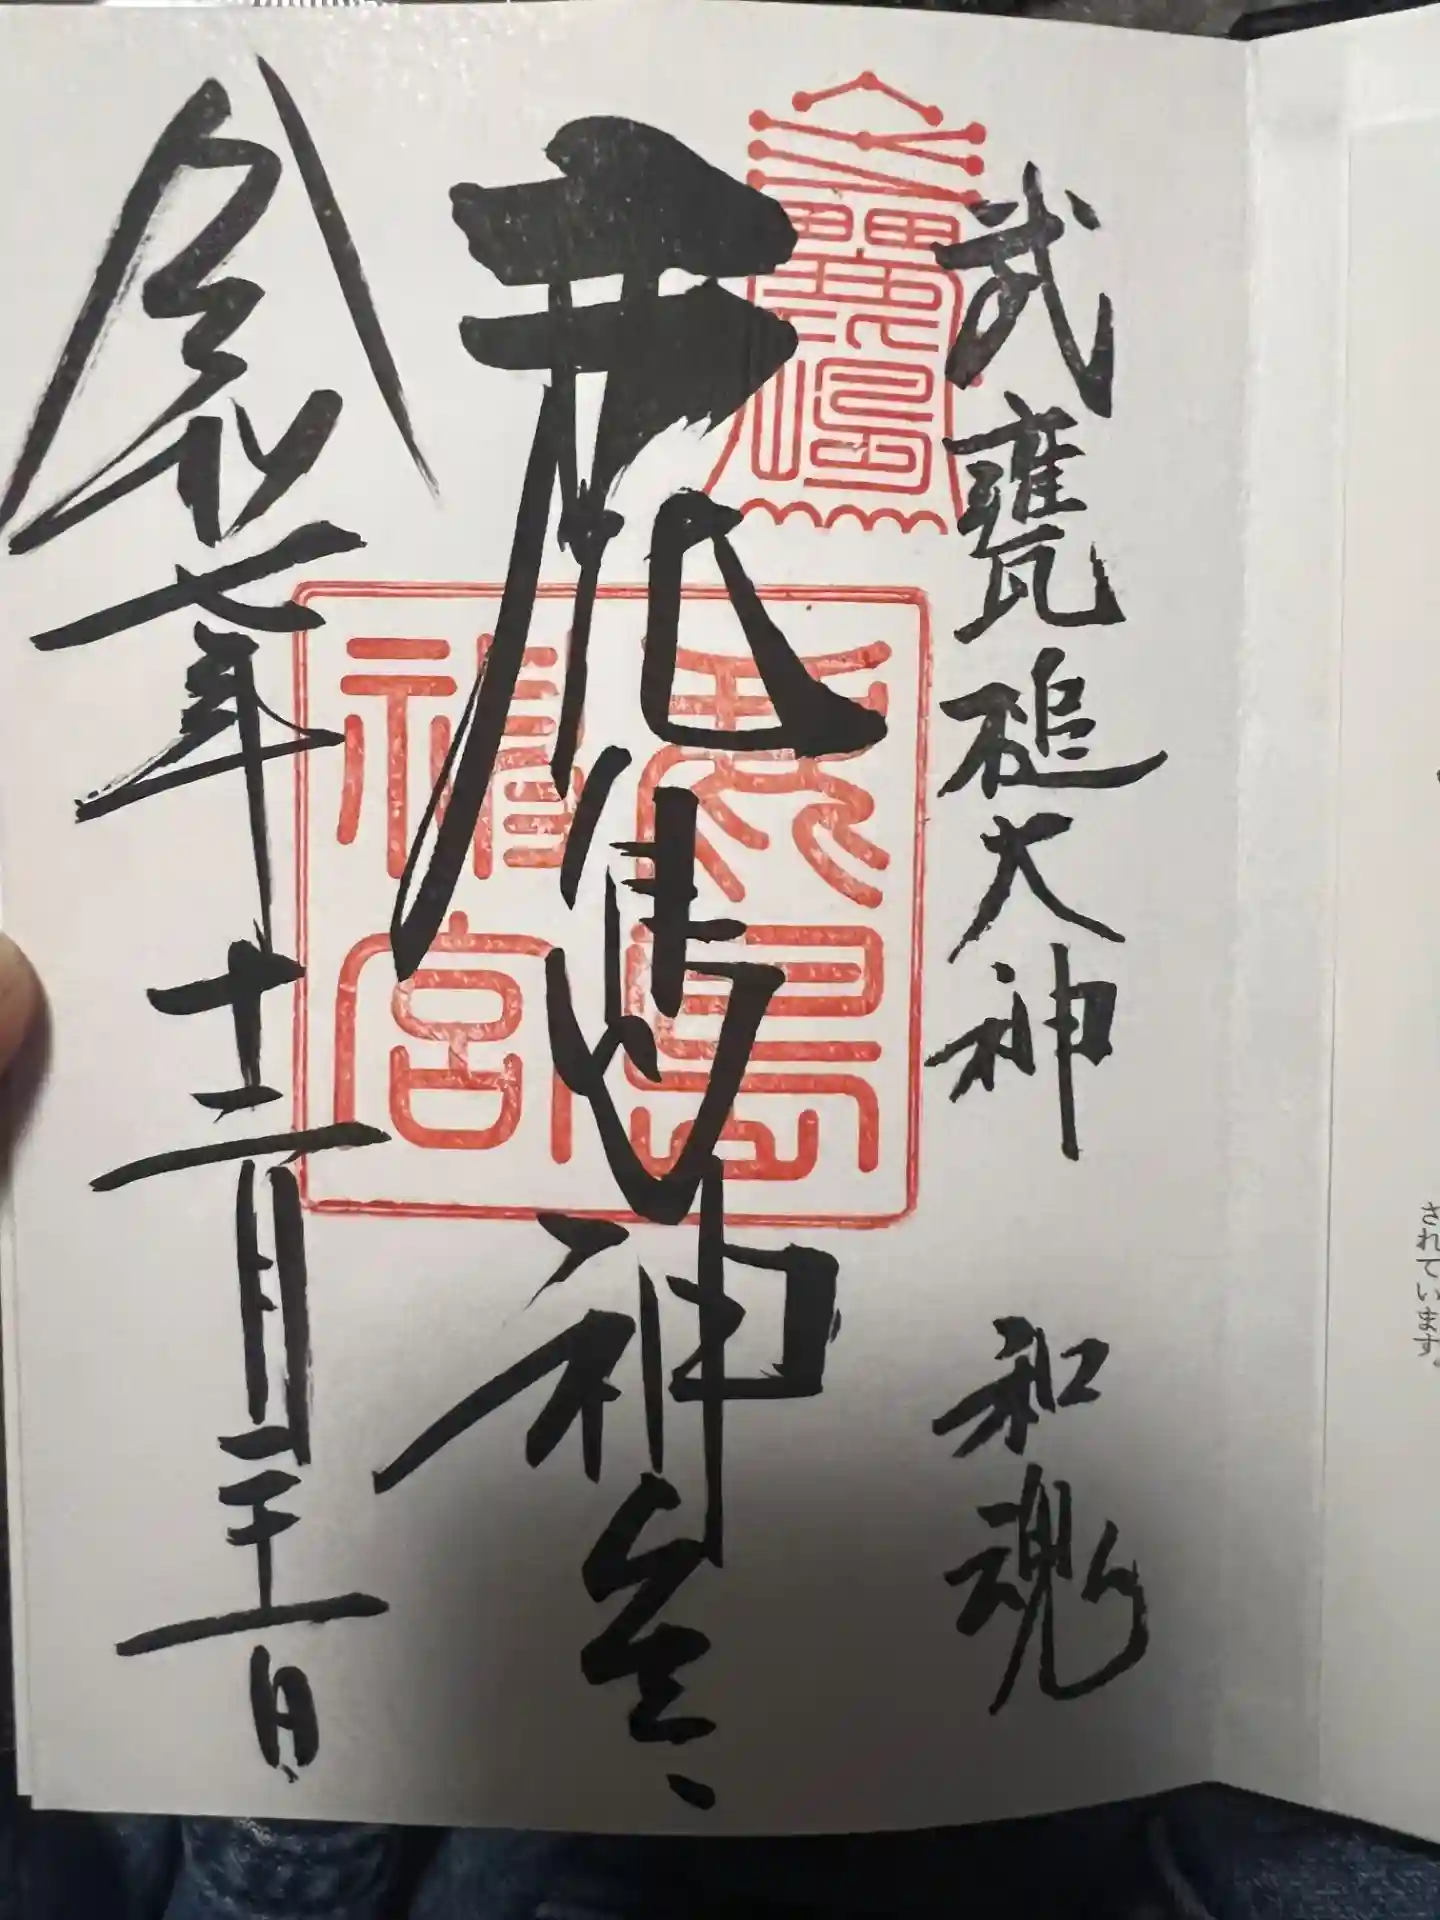 されています。
武甕槌大神 和魂
鹿島神宮
令和七年十二月二十一日
鹿島
神宮